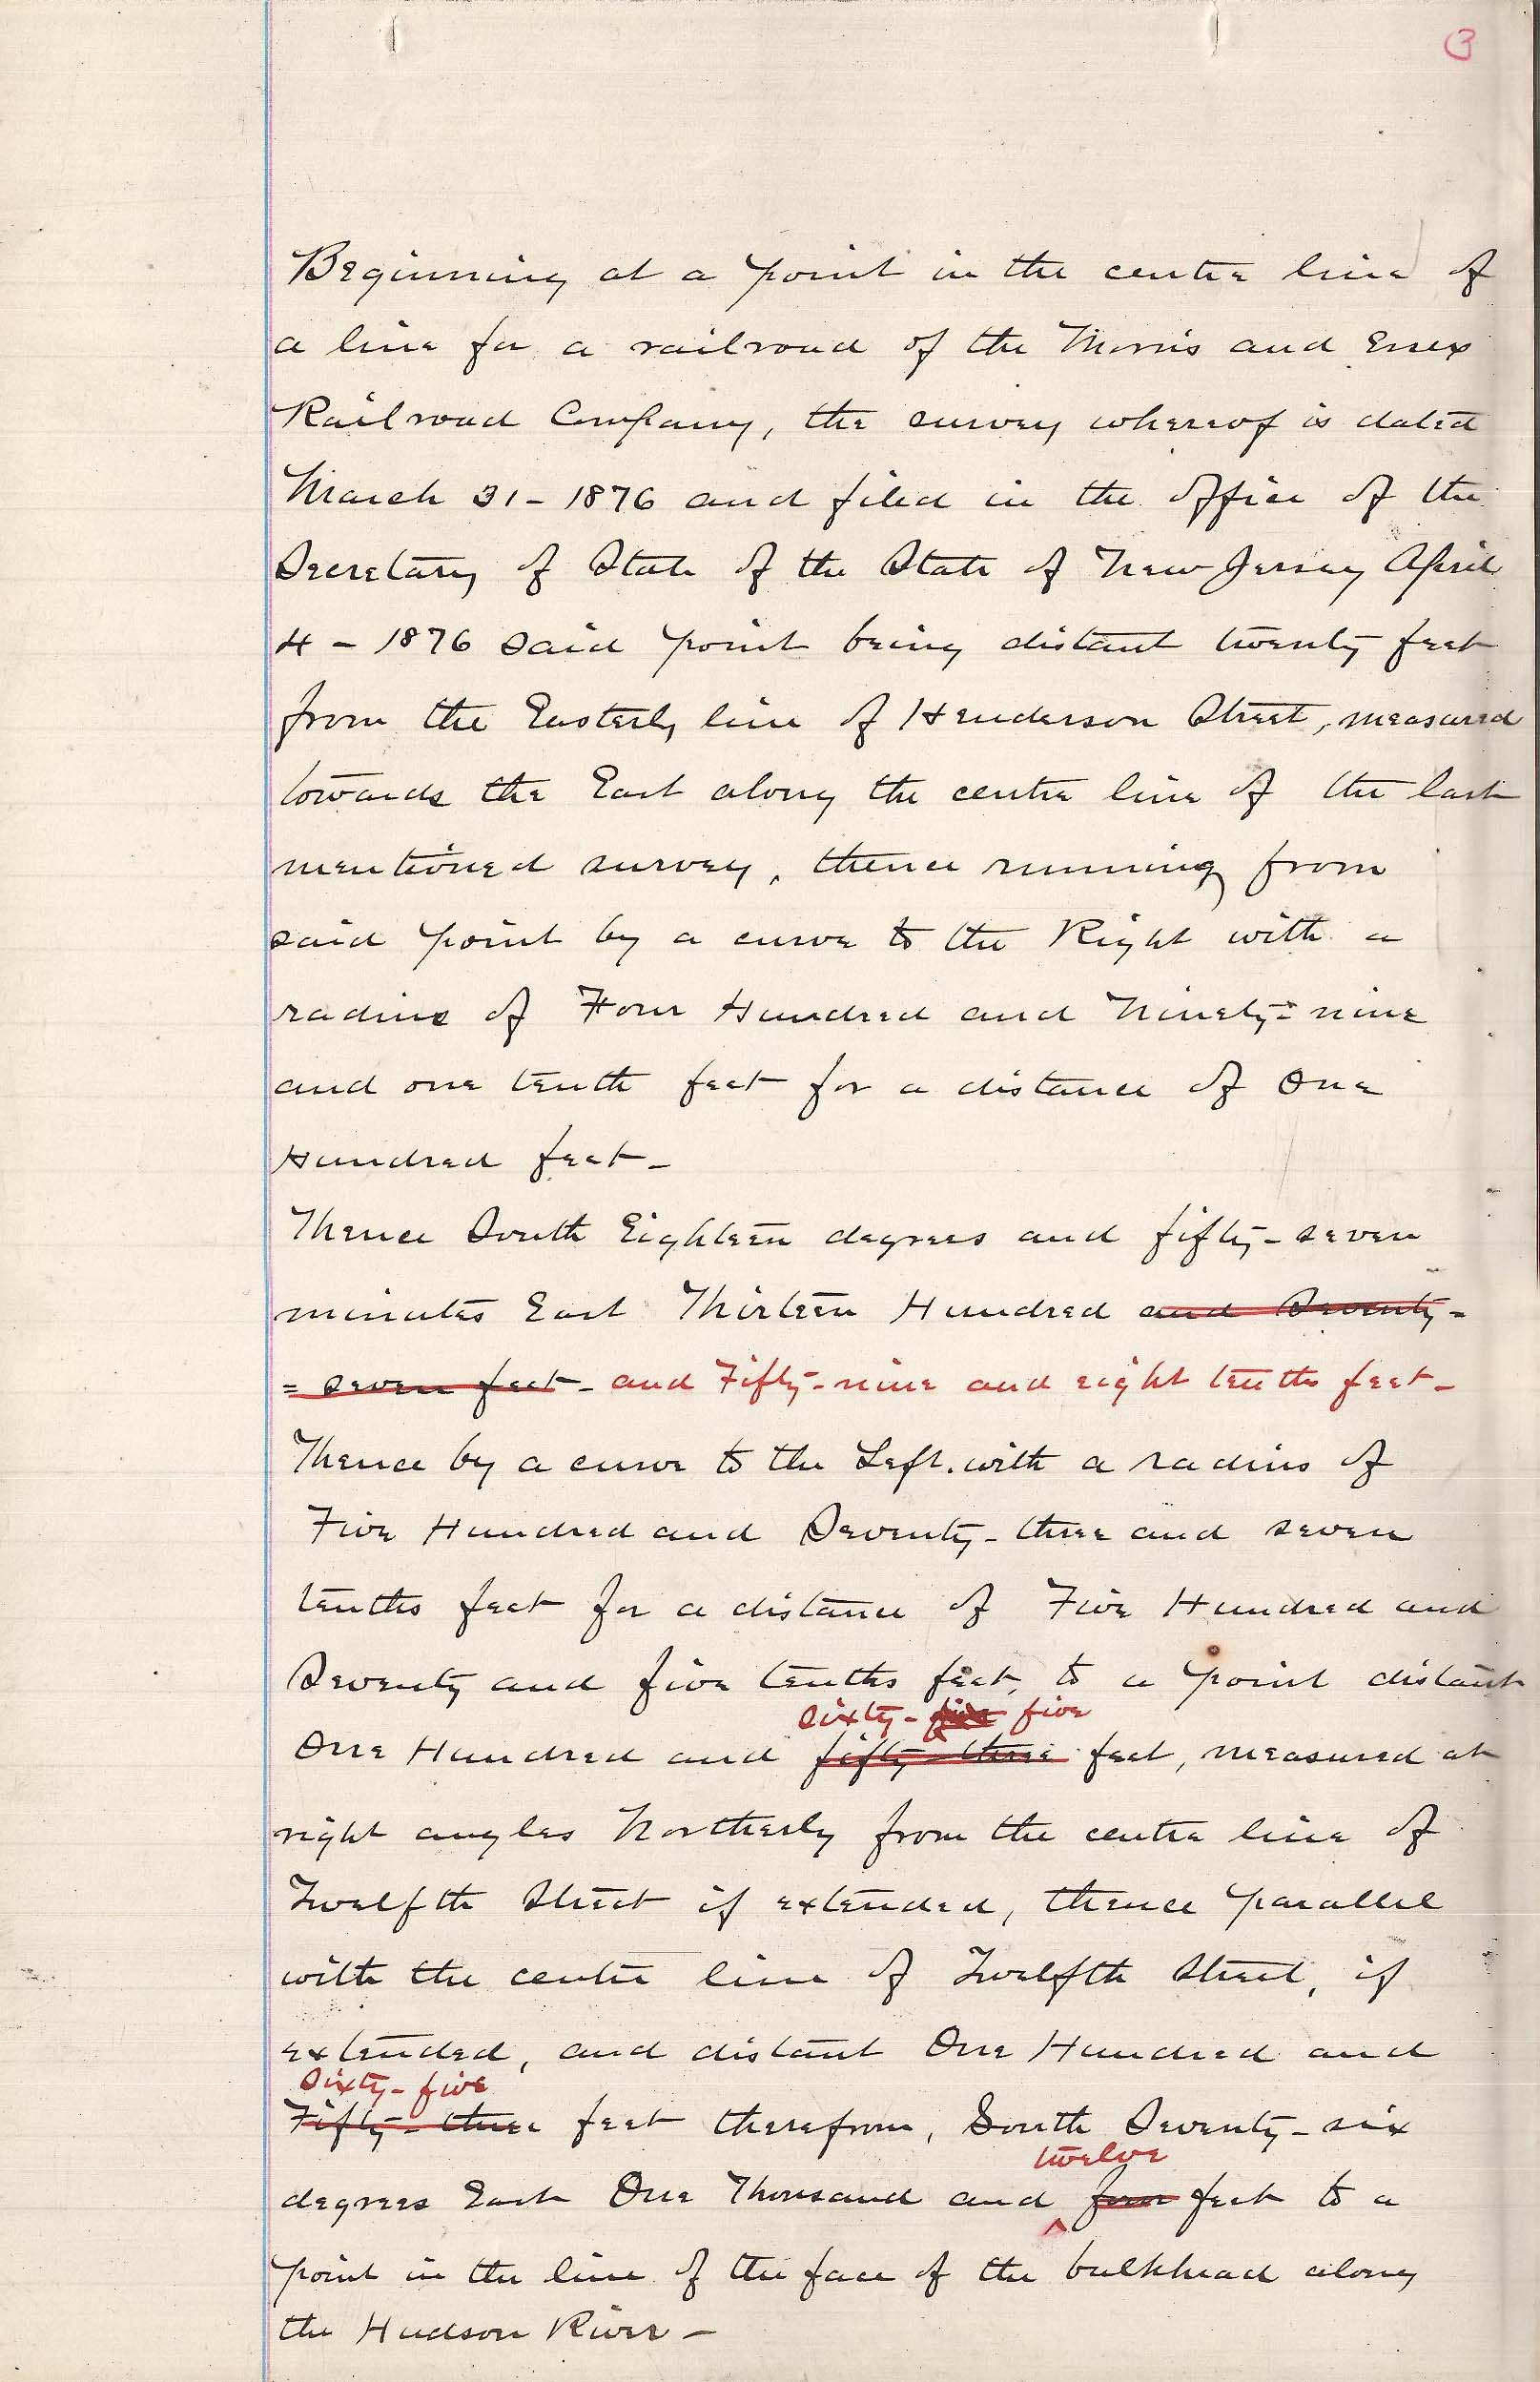 3
Beginning at a point in the centre line of
a line for a railroad of the Morris and Essex
Railroad Company, the survey whereof is dated
March 31 - 1876 and filed in the office of the
Secretary of State of the State of New Jersey April
4 - 1876 said point being distant twenty feet
from the Easterly line of Henderson Street, measured
towards the East along the centre line of the last
mentioned survey, thence running from
said point by a curve to the Right with a
radius of Four Hundred and Ninety-nine
and one tenth feet for a distance of One
Hundred feet -
Thence South Eighteen degrees and fifty-seven
minutes East Thirteen Hundred and Seventy-
= seven feet - and Fifty-nine and eight tenths feet -
Thence by a curve to the Left. with a radius of
Five Hundred and Seventy-three and seven
tenths feet for a distance of Five Hundred and
Seventy and five tenths feet, to a point distant
Sixty- five five
One Hundred and fifty-three feet, measured at
right angles Northerly from the centre line of
Twelfth Street if extended, thence parallel
with the centre line of Twelfth Street, if
extended, and distant One Hundred and
Sixty-five
Fifty-three feet therefrom, South Seventy-six
twelve
degrees East One Thousand and ^ four feet to a
point in the line of the face of the bulkhead along
the Hudson River -